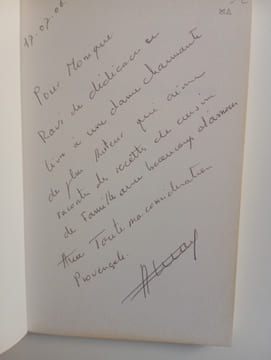 17-07-06
Pour Monique
Ravi de dédicacer ce
livre à une dame charmante
de plus auteur qui aime
raconter des recettes de cuisine
de famille avec beaucoup d'amour
Avec Toute ma considération
Provençale.